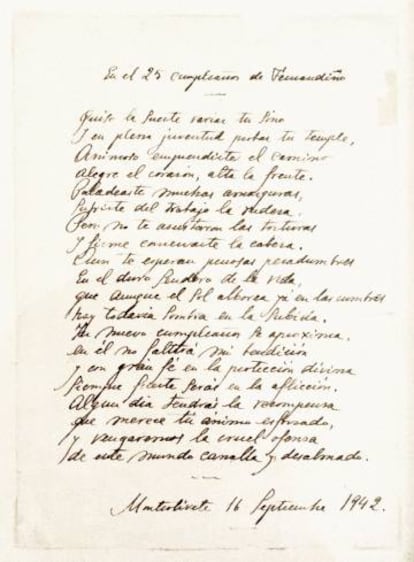 En el 25 cumpleaños de Fernandiño
Quiso la Suerte variar tu Sino
Y en plena juventud probar tu temple,
Animoso emprendiste el camino
Alegre el corazón, alta la frente.
Paladeaste muchas amarguras,
Sufriste del trabajo la rudeza,
Pero no te asustaron las torturas
Y firme conservaste la cabeza.
Aun te esperan penosas pesadumbres
En el duro Sendero de la vida,
que aunque el Sol alborea ya en las cumbres
hay todavía Sombra en la Subida.
Un nuevo cumpleaños Se aproxima.
en él no faltará mi bendición
y con gran fé en la protección divina
Siempre fuerte Serás en la aflicción.
Algun dia tendrás la recompensa
que merece tu ánimo esforzado,
y vengaremos la cruel ofensa
de este mundo canalla y desalmado.
16 Septiembre 1942.